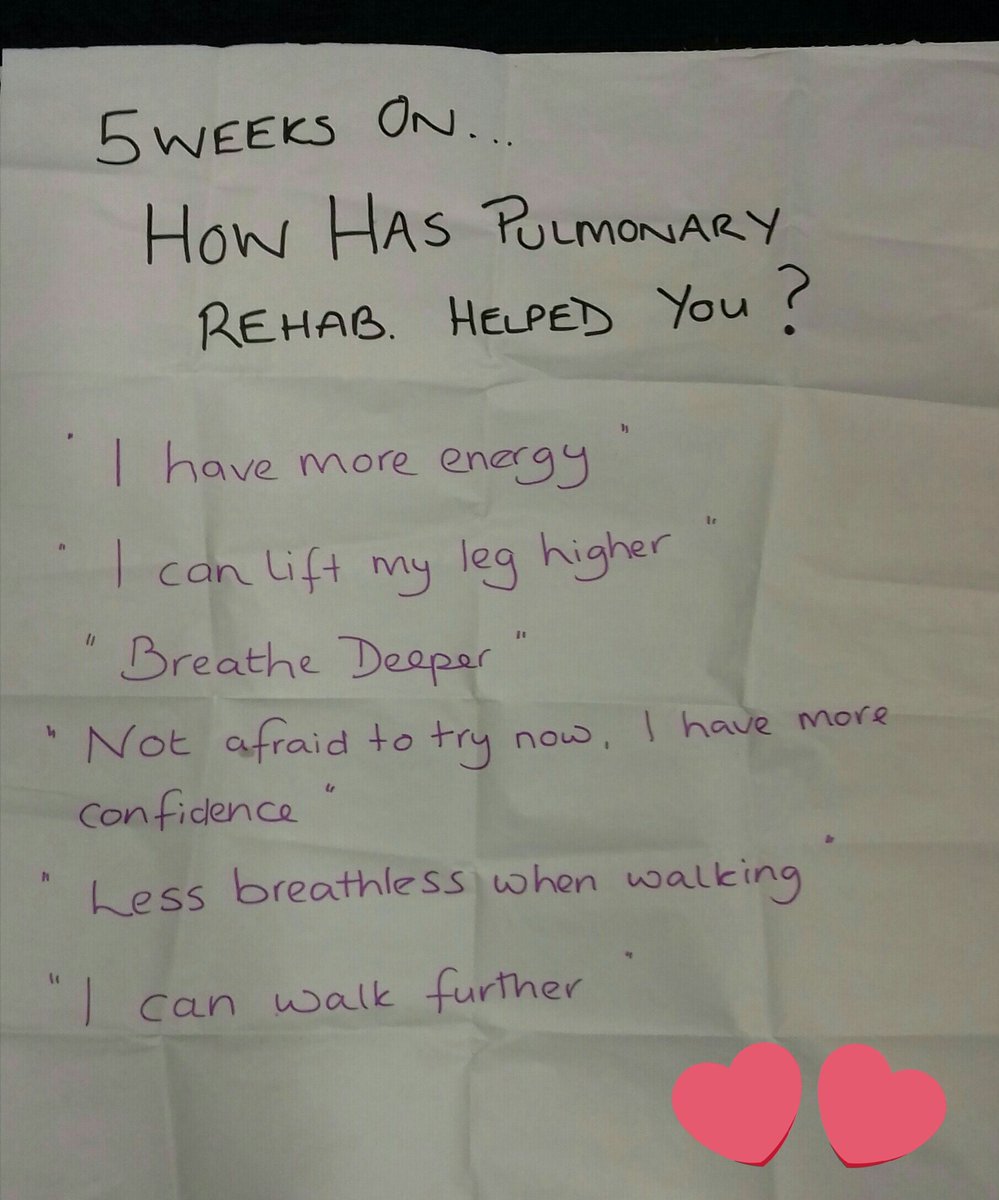 5 WEEKS ON...
HOW HAS PULMONARY
REHAB. HELPED YOU?
"I have more energy"
"I can lift my leg higher"
"Breathe Deeper"
"Not afraid to try now. I have more
confidence"
"Less breathless when walking"
"I can walk further"